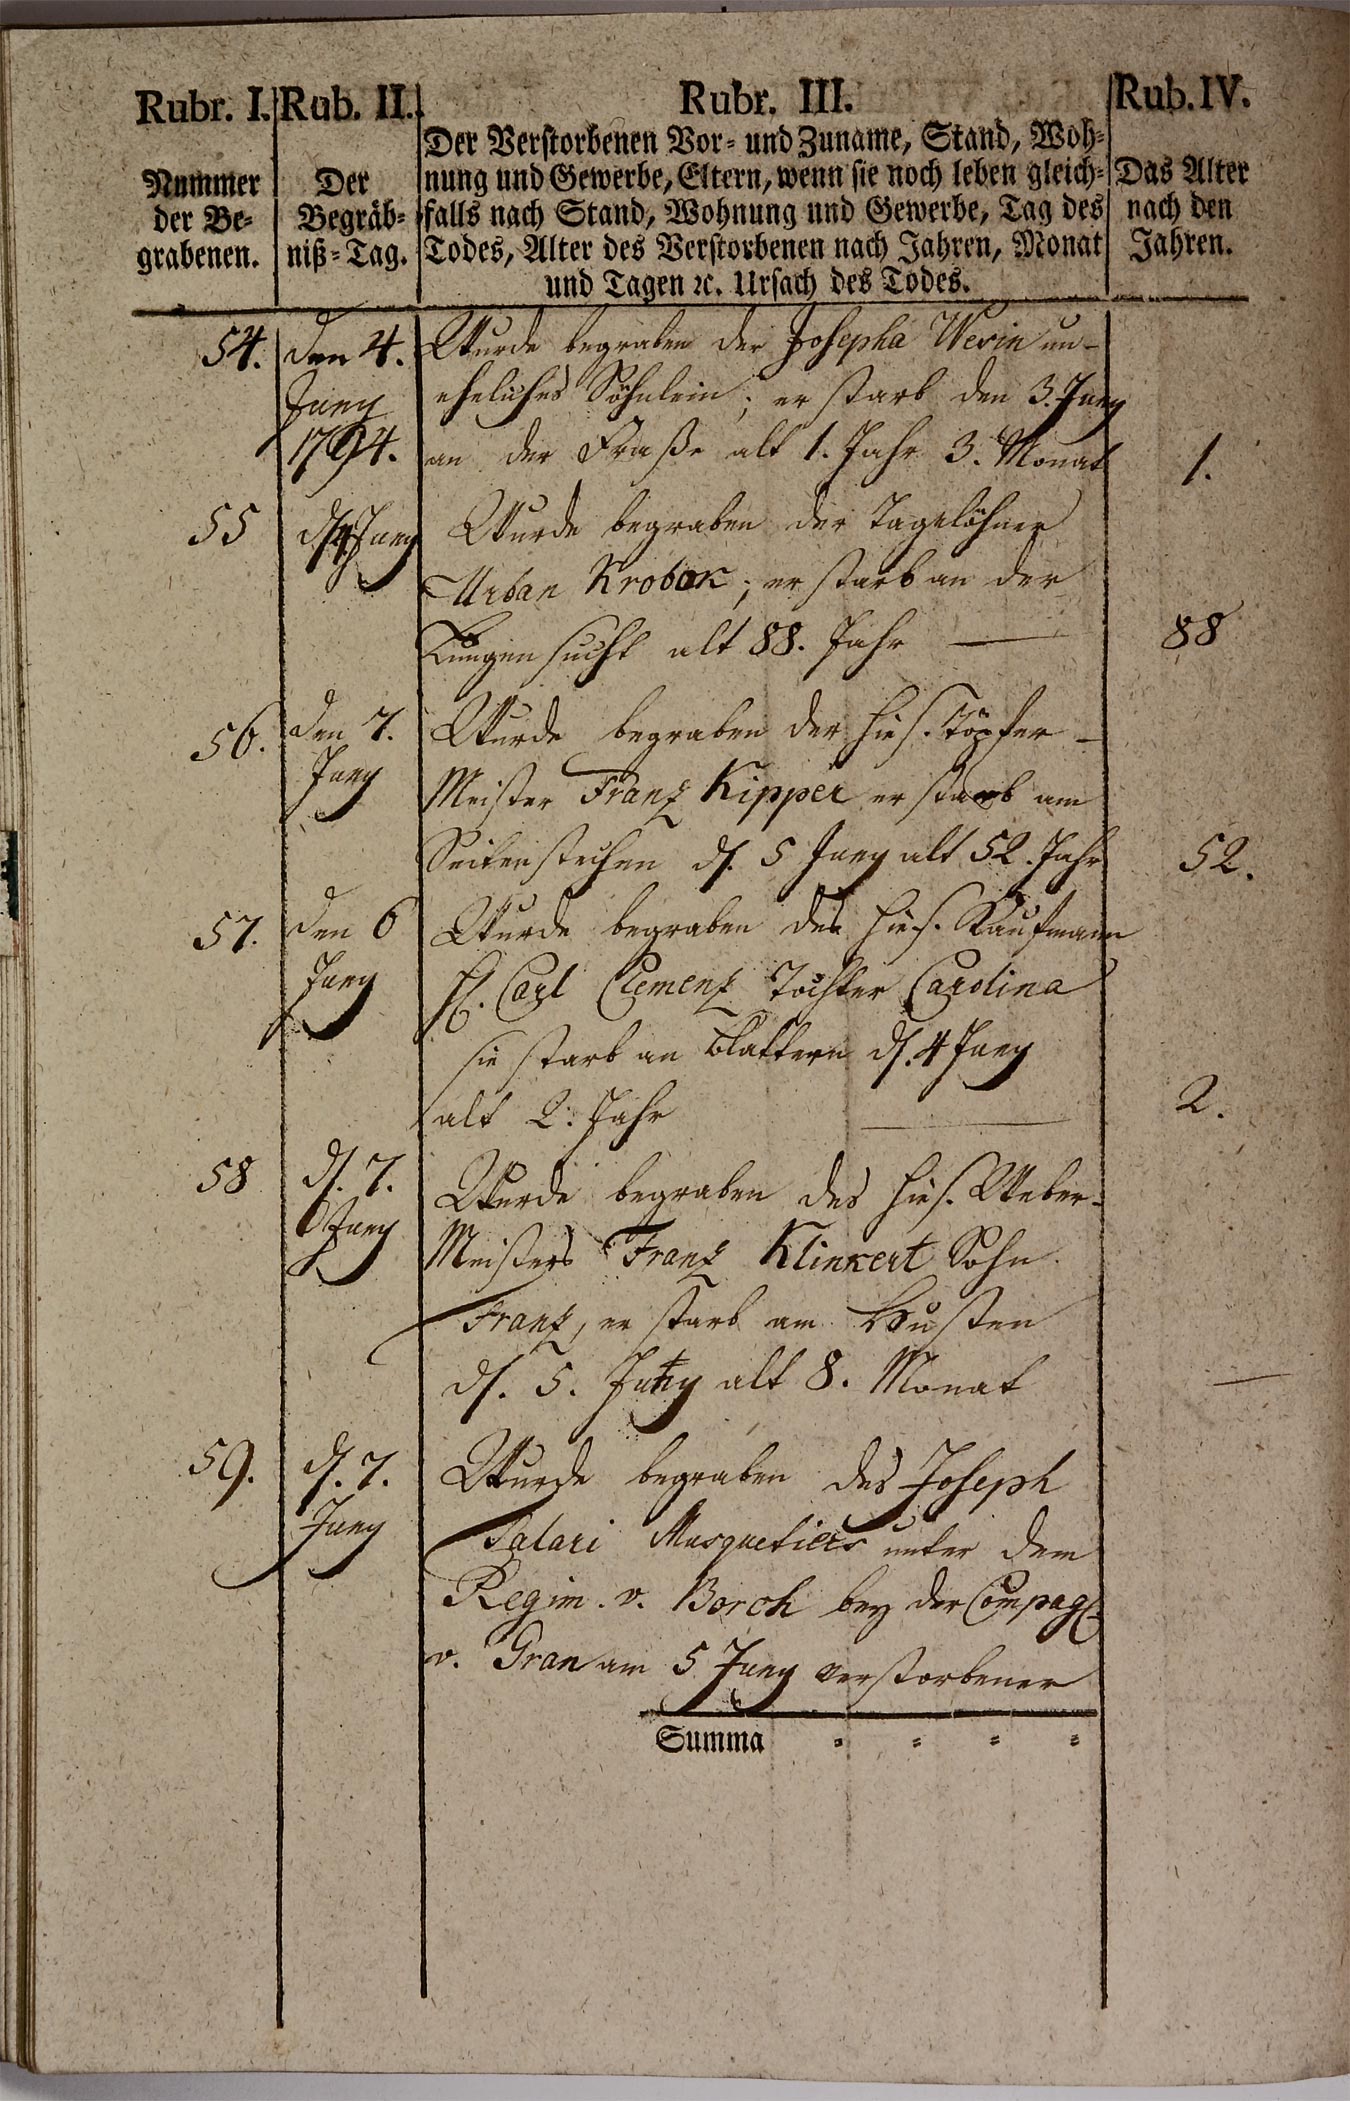 Rubr. I. Rub. II. Rubr. III. Rub. IV.
Nummer der Be- grabenen.
Der Begräb- niß-Tag.
Der Verstorbenen Vor- und Zuname, Stand, Woh-
nung und Gewerbe, Eltern, wenn sie noch leben gleich-
falls nach Stand, Wohnung und Gewerbe, Tag des
Todes, Alter des Verstorbenen nach Jahren, Monat
und Tagen ꝛc. Ursach des Todes.
Das Alter nach den Jahren.
54. den 4. Wurde begraben der Josepha Werin un-
Juny eheliches Söhnlein; er starb den 3. Juny
1794. an der Fraße alt 1. Jahr 3. Monat 1.
55 d. 4 Juny Wurde begraben der Tagelöhner
Urban Krobok; er starb an der
Lungensucht alt 88. Jahr — 88
56. den 7. Wurde begraben der hies. Töpfer-
Juny Meister Franz Kipper er starb am
Seitenstechen d. 5 Juny alt 52. Jahr 52.
57. den 6 Wurde begraben des hies. Kaufmann
Juny H. Carl Clemenz Tochter Carolina
sie starb an Blattern d. 4 Juny
alt 2. Jahr — 2.
58 d. 7. Wurde begraben des hies. Weber-
Juny Meisters Franz Klinkert Sohn
Franz, er starb am Husten
d. 5. Juny alt 8. Monat —
59. d. 7. Wurde begraben des Joseph
Juny Salari Musquetiers unter dem
Regim. v. Borch bey der Compag.
v. Gran am 5 Juny verstorbener
Summa